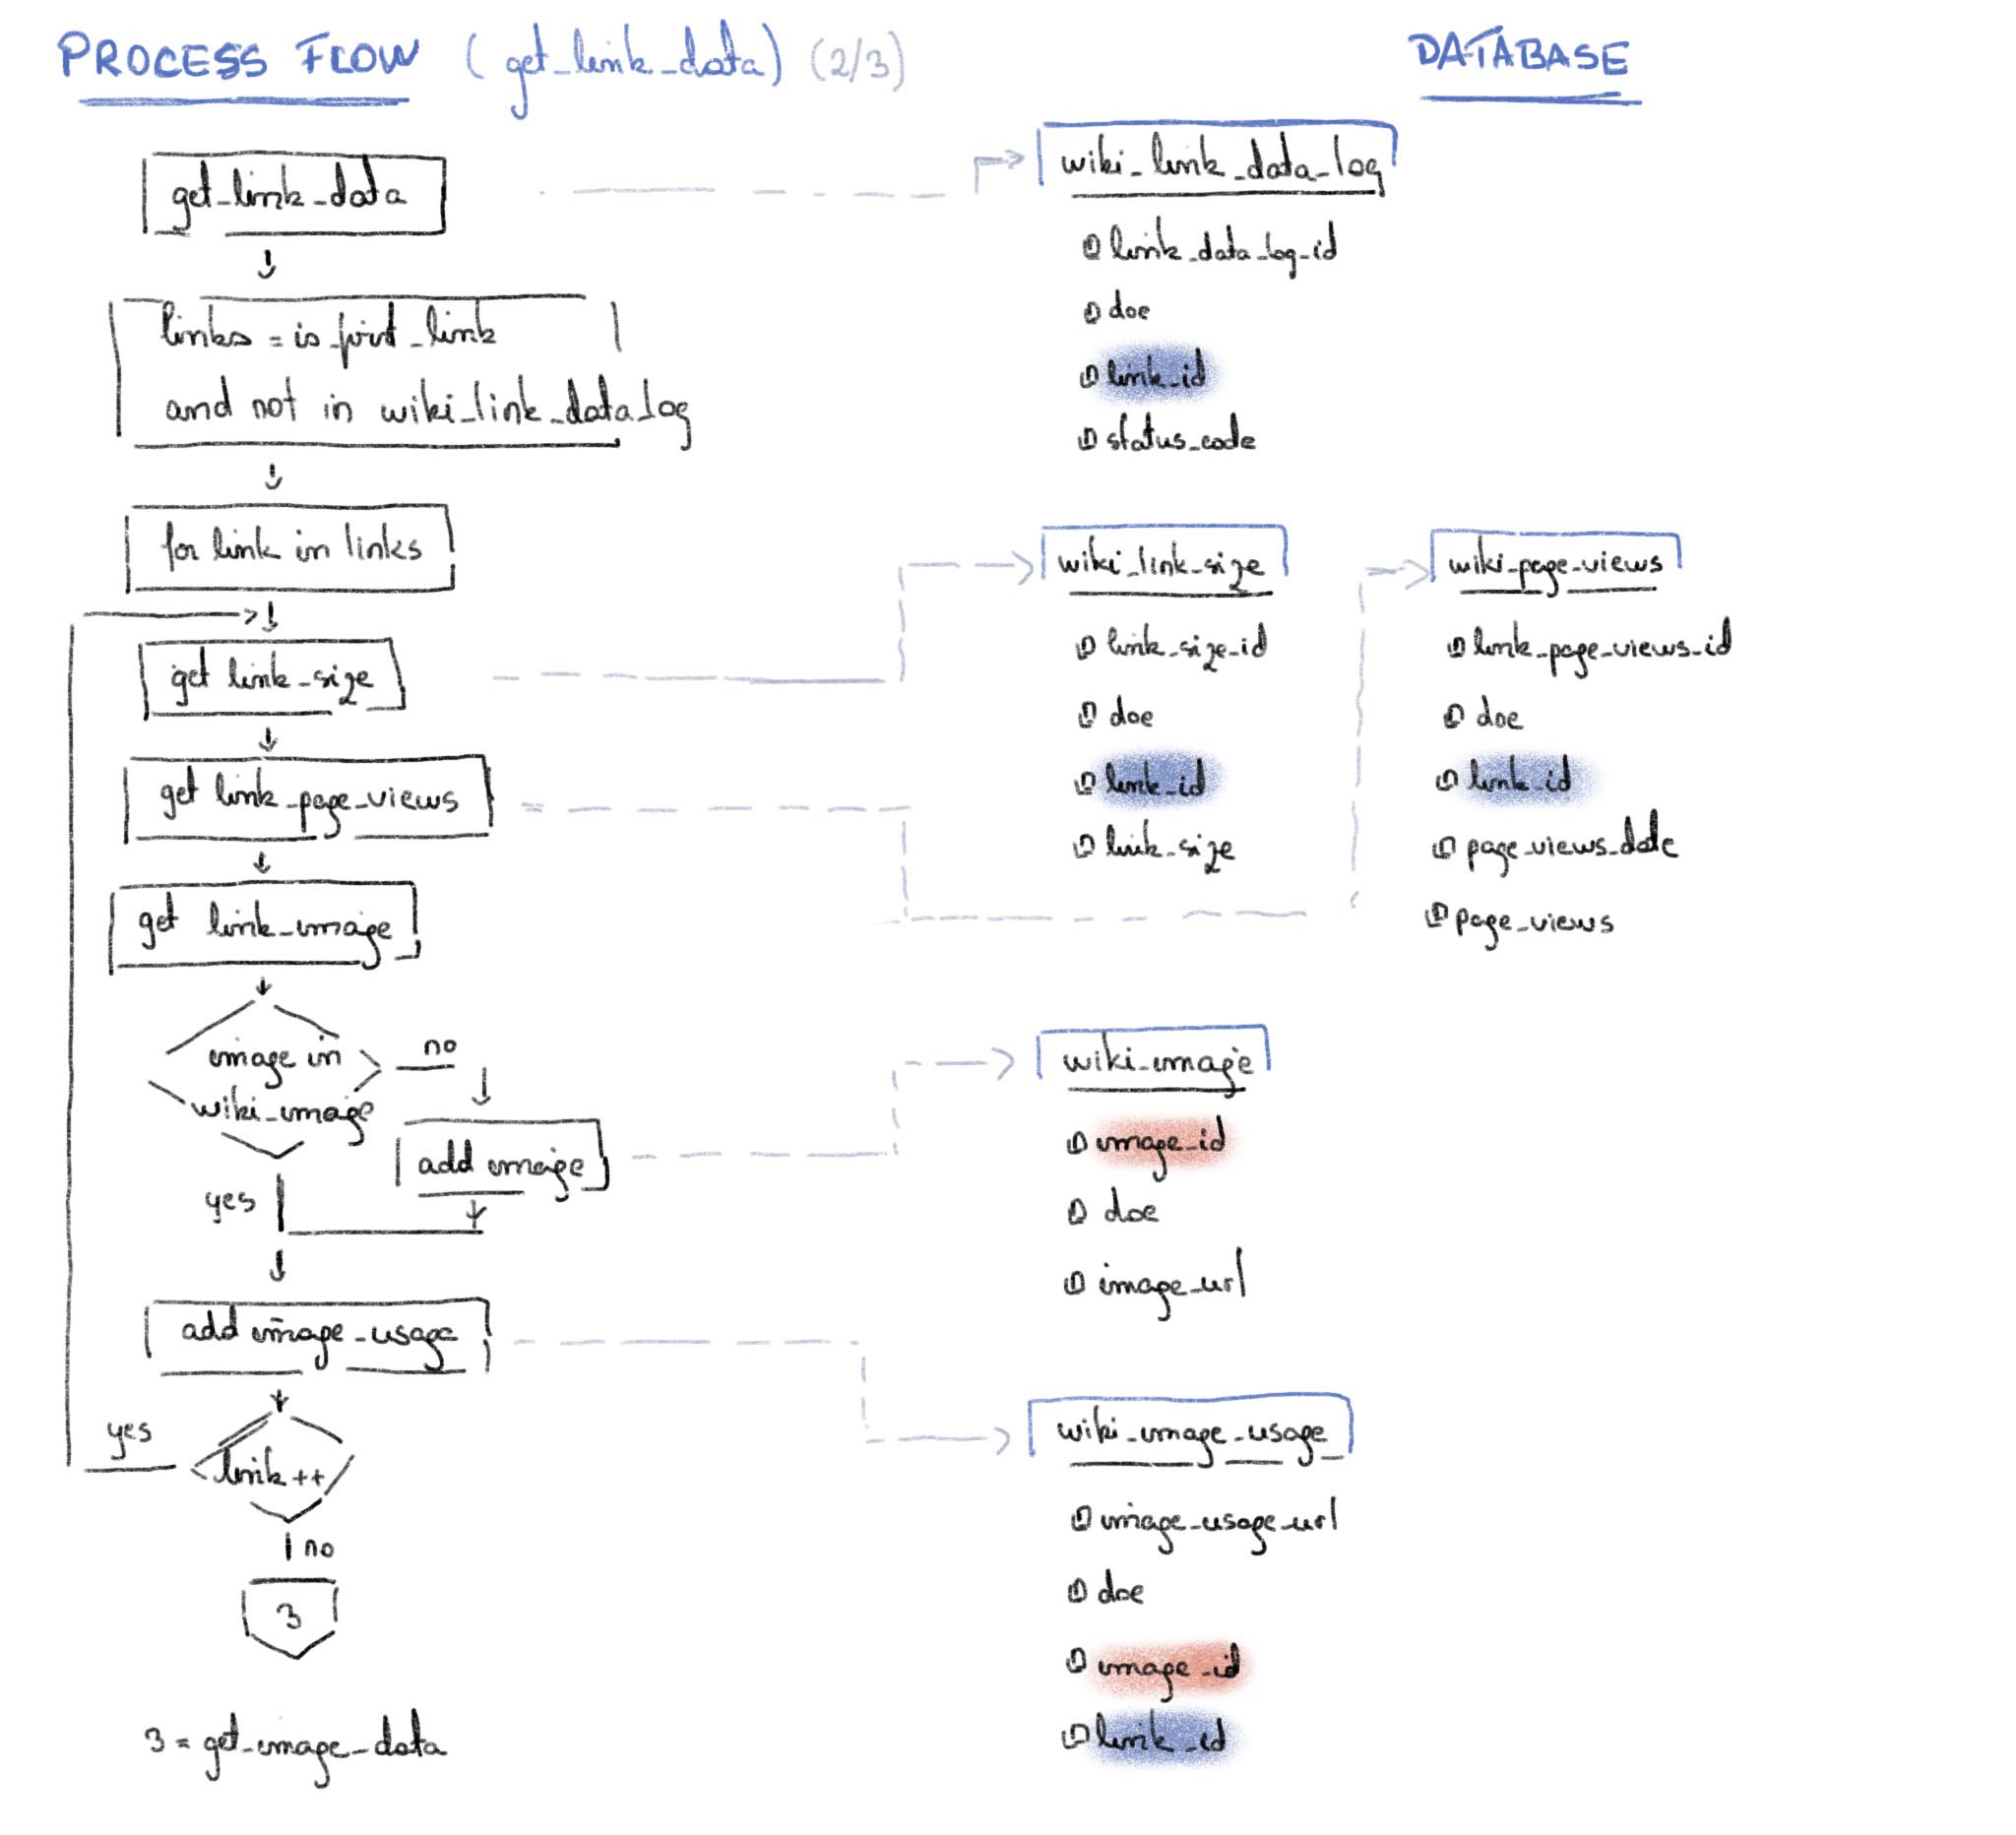 PROCESS FLOW (get_link_data) (2/3)
get_link_data
links = is_first_link
and not in wiki_link_data_log
for link in links
get link_size
get link_page_views
get link_image
image in
wiki_image
no
add image
yes
add image_usage
link++
yes
no
3
3 = get_image_data
DATABASE
wiki_link_data_log
link_data_log_id
doe
link_id
status_code
wiki_link_size
link_size_id
doe
link_id
link_size
wiki_page_views
link_page_views_id
doe
link_id
page_views_date
page_views
wiki_image
image_id
doe
image_url
wiki_image_usage
image_usage_url
doe
image_id
link_id